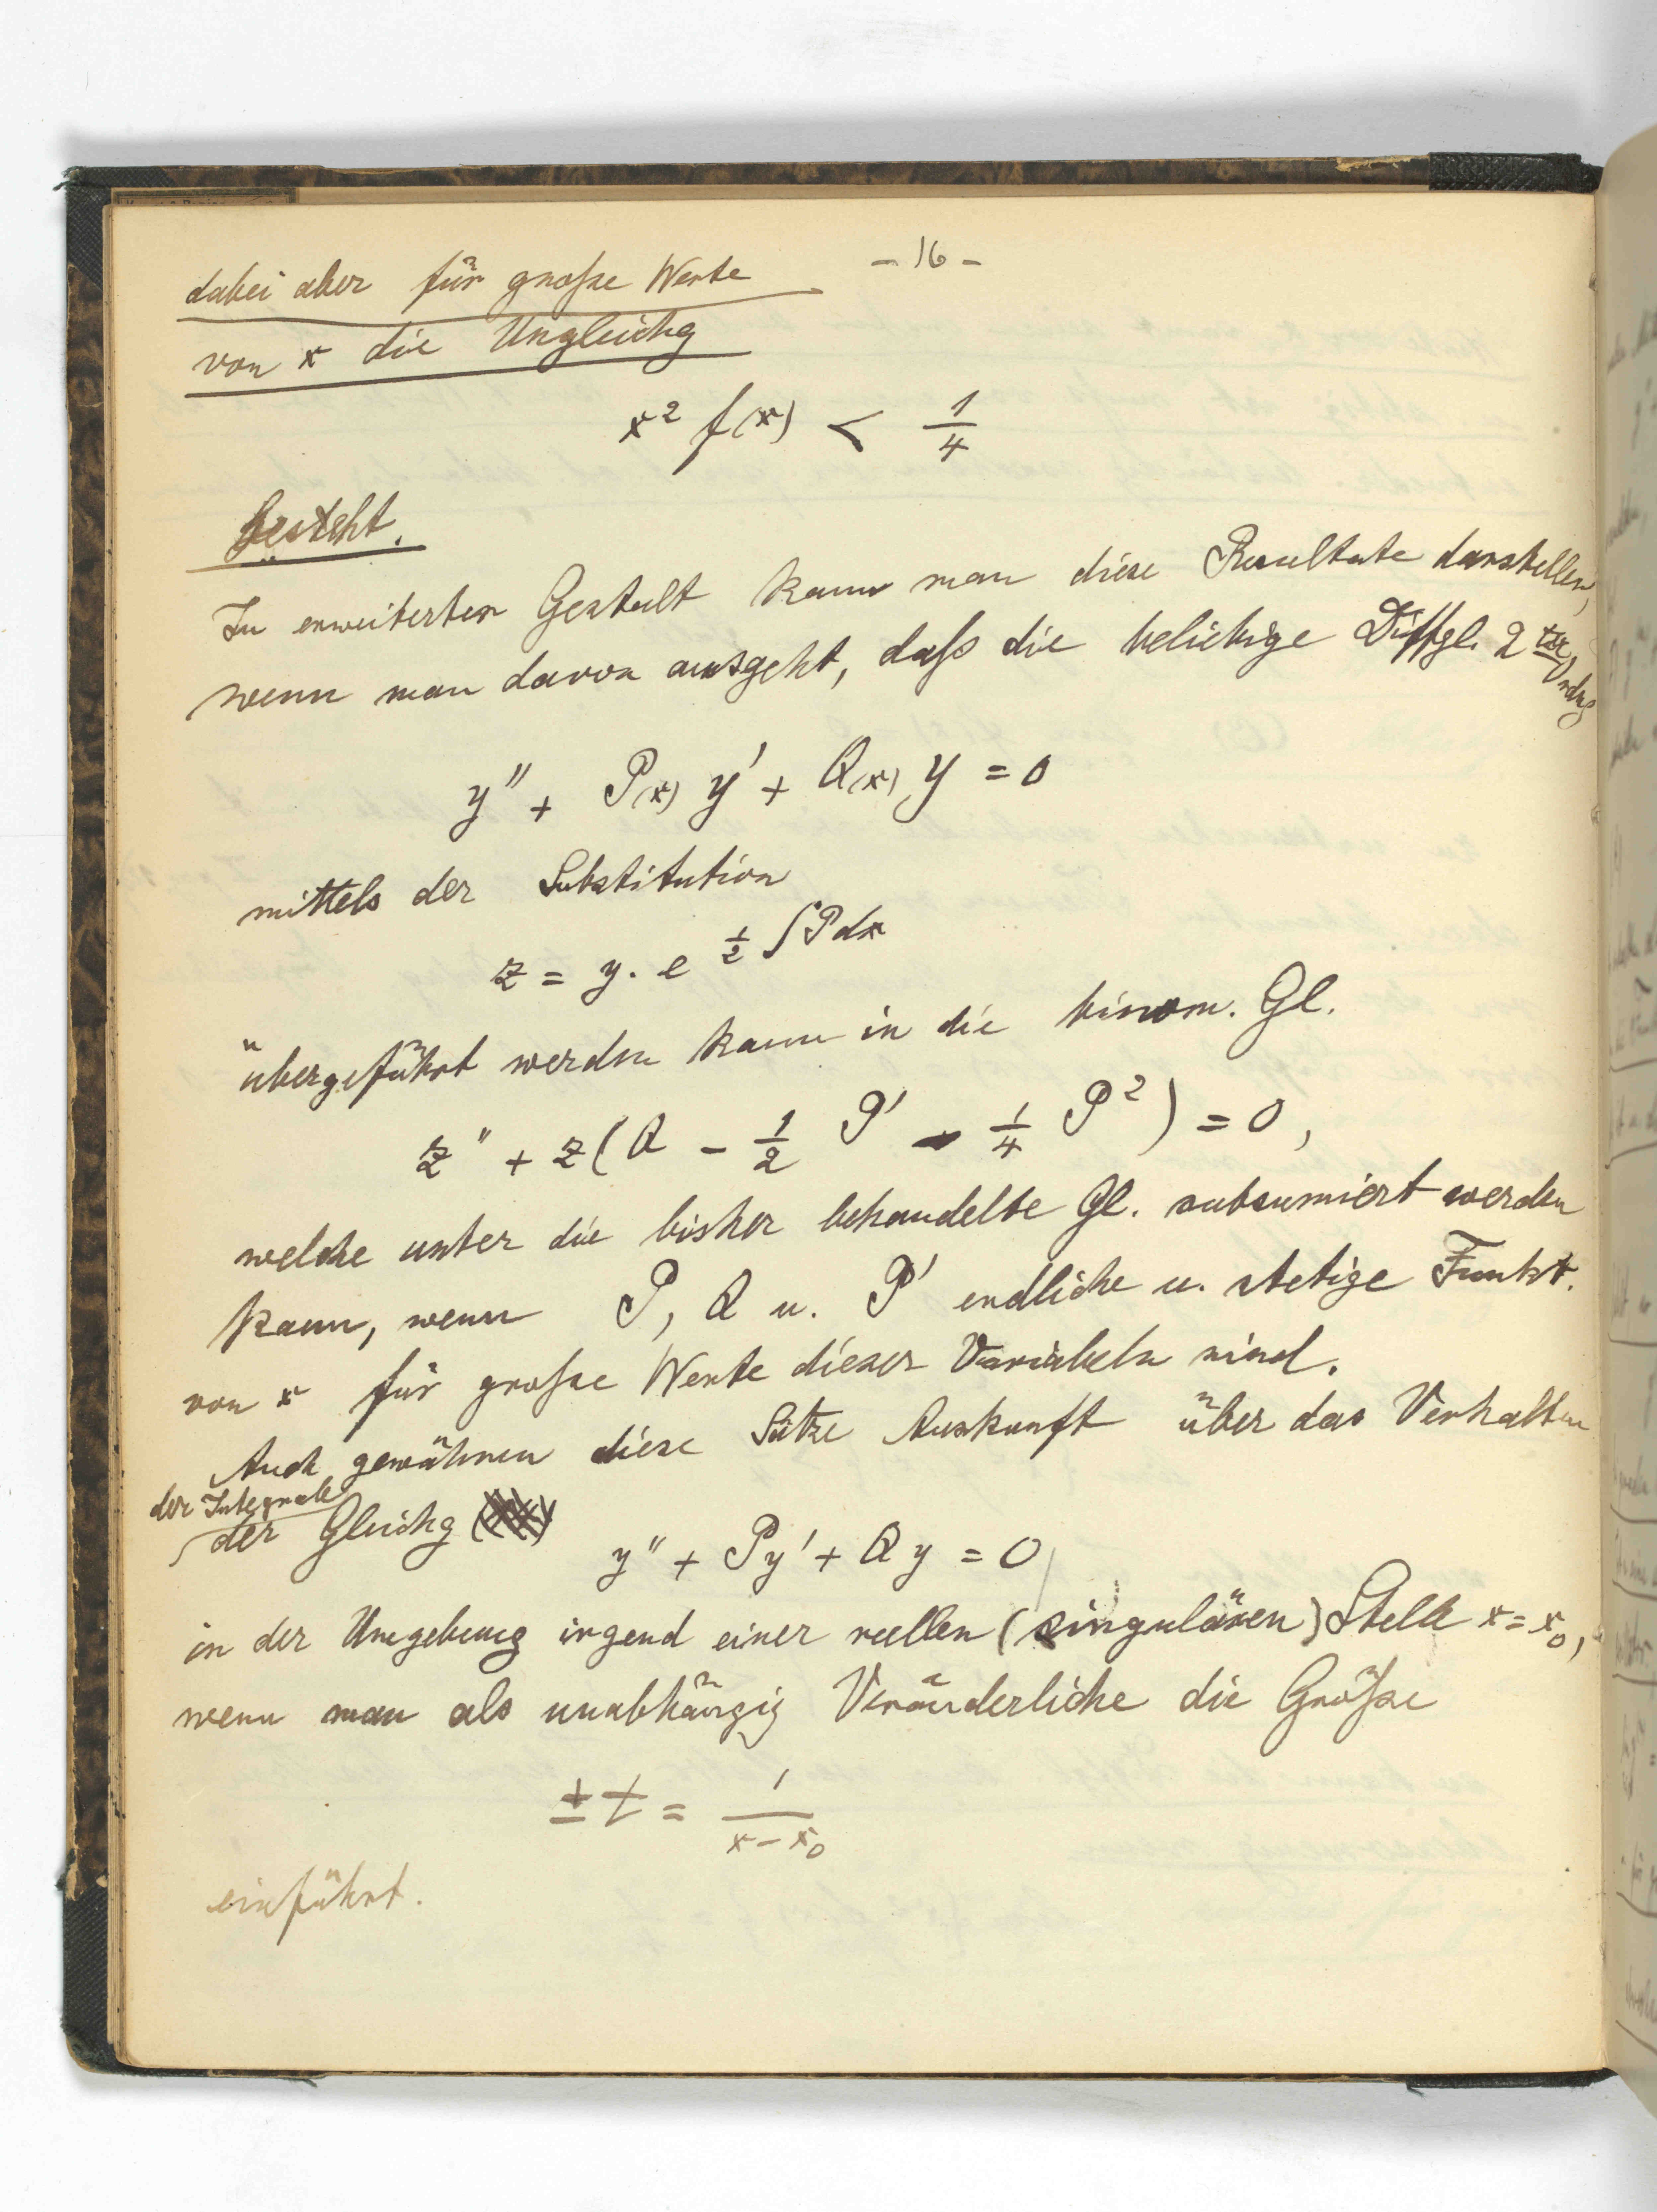 - 16 -
dabei aber für große Werte
von x die Ungleichg
x² f(x) < 1/4
besteht.
In erweiterter Gestalt kann man diese Resultate darstellen,
wenn man davon ausgeht, daß die beliebige Diffgl. 2ter Ordng
y'' + P(x) y' + Q(x) y = 0
mittels der Substitution
z = y . e^{1/2 ∫ P dx}
übergeführt werden kann in die binom. Gl.
z'' + z ( Q - 1/2 P' - 1/4 P² ) = 0 ,
welche unter die bisher behandelte Gl. subsumiert werden
kann, wenn P, Q u. P' endliche u. stetige Funkt.
von x für große Werte dieser Variabeln sind.
Auch gewähren diese Sätze Auskunft über das Verhalten
der Integrale
der Gleichg
y'' + Py' + Qy = 0
in der Umgebung irgend einer reellen (singulären) Stelle x = x₀,
wenn man als unabhängig Veränderliche die Größe
± t = 1/(x - x₀)
einführt.